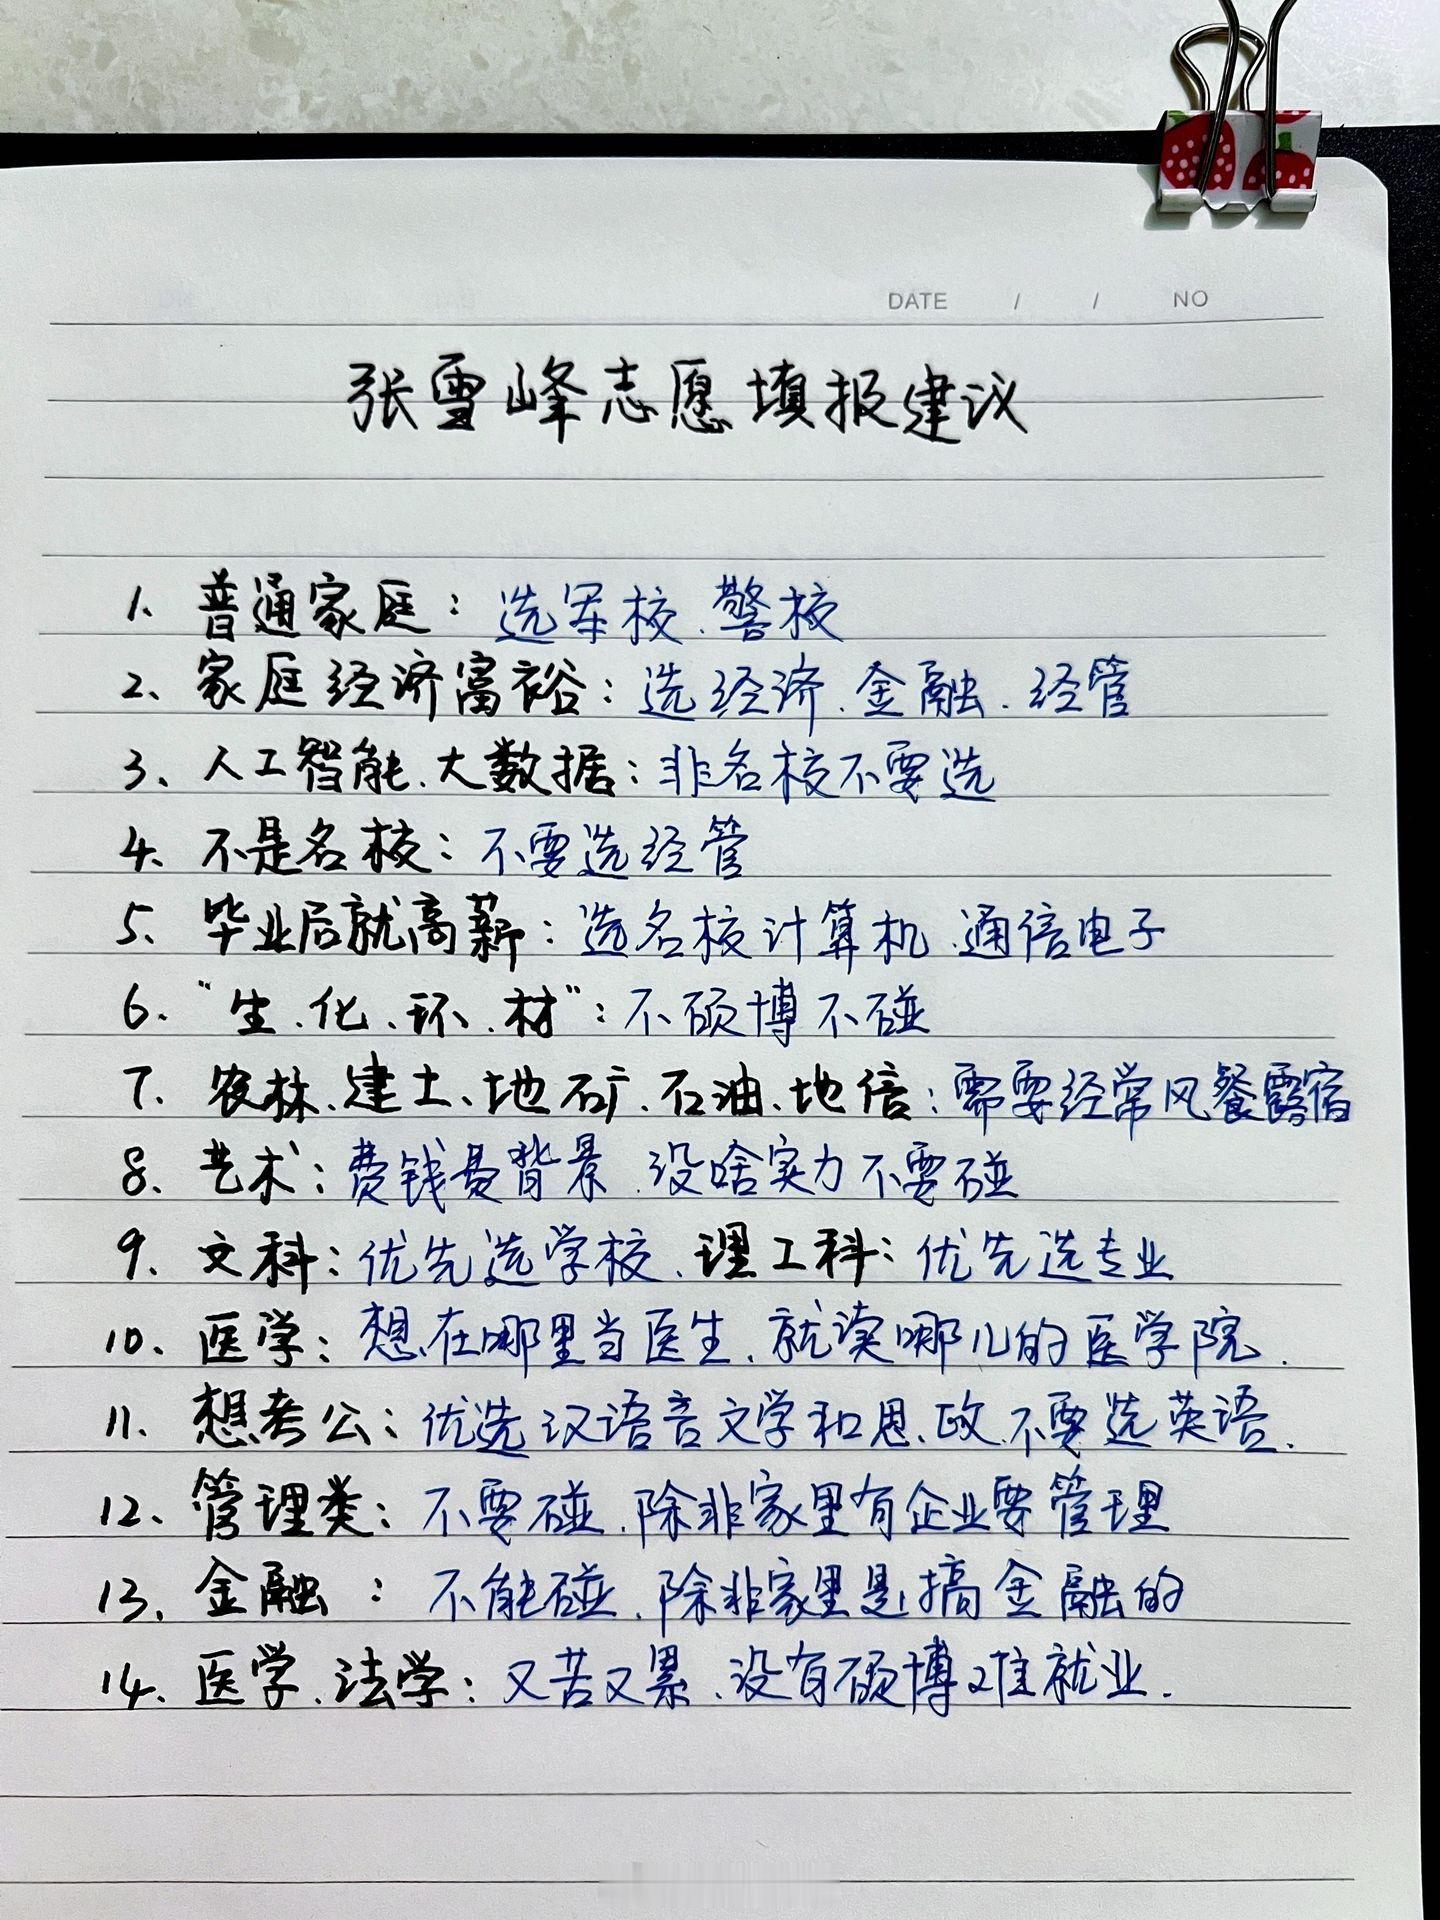 DATE / / NO
张雪峰志愿填报建议
1、普通家庭：选军校、警校
2、家庭经济富裕：选经济、金融、经管
3、人工智能、大数据：非名校不要选
4、不是名校：不要选经管
5、毕业后就高薪：选名校计算机、通信电子
6、“生、化、环、材”：不硕博不碰
7、农林、建土、地矿、石油、地信：需要经常风餐露宿
8、艺术：费钱费背景、没啥实力不要碰
9、文科：优先选学校、理工科：优先选专业
10、医学：想在哪里当医生、就读哪儿的医学院.
11、想考公：优选汉语言文学和思政、不要选英语.
12、管理类：不要碰、除非家里有企业要管理
13、金融：不能碰、除非家里是搞金融的
14、医学、法学：又苦又累、没有硕博难就业.